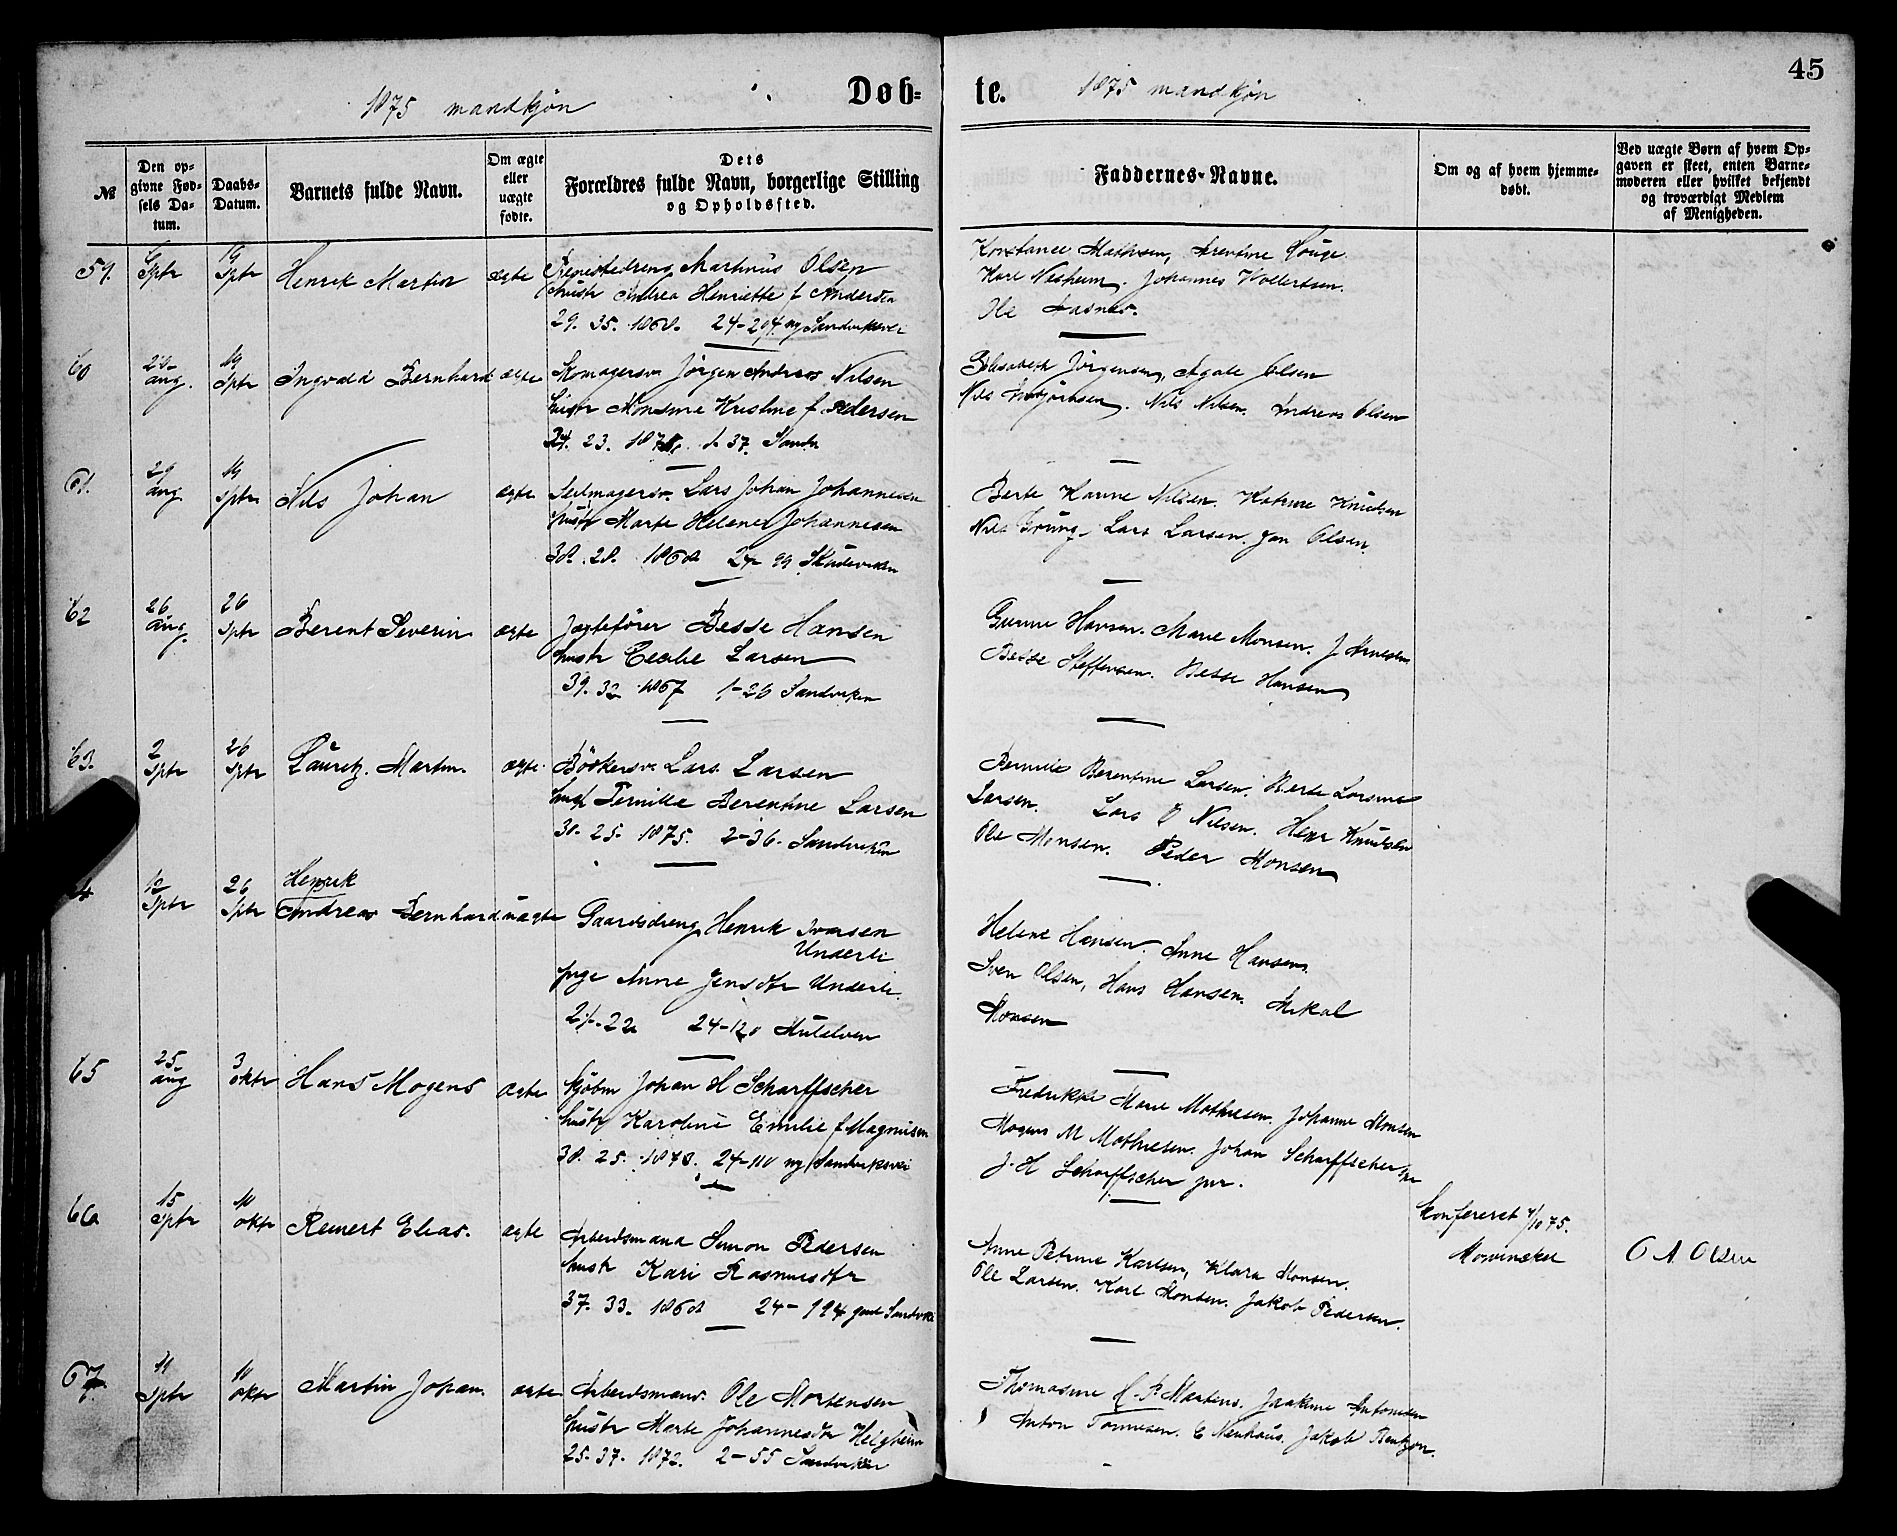 45
1875 mandkjøn
Døb=
te.
1875 mandkjøn
№
Den op-
givne Fød-
sels Da-
tum.
Daabs-
Datum.
Barnets fulde Navn.
Om ægte
eller
uægte
fødte.
Dets
Forældres fulde Navn, borgerlige Stilling
og Opholdssted.
Faddernes-Navne.
Om og af hvem hjemme-
døbt.
Ved uægte Børn af hvem Op-
gaven er skeet, enten Barne-
moderen eller hvilket bekjendt
og troværdigt Medlem
af Menigheden.
59. Sptr 19 Sptr Henrik Martin ægte Martinus Olsen
hustr Andrea Henriette f Andersen
29. 35. 1868. 24-204 ny Sandviksvei
Konstance Mathisen,
Karl Nesheim. Johannes Vollertsen.
Ole
60 aug. 19 Sptr Ingvald Bernhard ægte Skomagersv Jørgen Andreas Nilsen
hustr Monsine Kristine f Pedersen
24. 23. 1 37. Sandv
Elisabeth Jørgensen, Agate Olsen
Nils Nilsen. Andreas Olsen
61. 29 aug 19 sptr Nils Johan ægte Seilmagersv Lars Johan Johannesen
hustr Marte Helene Johannesen
38. 28. 1868 24 99 Skudeviken
Berte Karine Nilsen. Katrine Knudsen
Nils Grung. Lars Larsen. Jan Olsen.
62 26 aug. 26 Sptr Berent Severin ægte Jægtefører Besse Hansen
hustr Cecilie Larsen
39. 32 1867 1-26 Sandviken
Gurine Hansen. Marie Monsen. J Arnesen
Besse Steffensen. Besse Hansen
63. 2 Sptr 26 Sptr Lauritz. Martin. ægte. Bödkersv. Lars Larsen
hust Pernille Berentine Larsen
30. 25. 1875. 2-36. Sandviken
Pernille Berentine Larsen. Berte Larsine
Larsen. Lars O Nilsen. Henr Knudsen
Ole Monsen. Peder Monsen
4 12 Sptr 26 Sptr Henrik
Andreas Bernhard uægte Gaardsdreng Henrik Iversen
Underli
pige Anne Jensdtr Underli.
22 24-120 Mulelven
Helene Hansen. Anne Hansen.
Sven Olsen, Hans Hansen. Mikal
Monsen
65 25 aug 3 oktr Hans Mogens ægte Kjøbm Johan H Scharffscher
hustr Karoline Emilie f Magnusen
38. 25. 1873. 24-110 ny Sandviksvei
Fredrikke Marie Mathiesen. Johanne Monsen
Mogens M Mathiesen. Johan Scharffscher
J. H Scharffscher jur.
66 15 Sptr 10 oktr Reinert Elias. ægte Arbeidsmand Simon Pedersen
hustr Kari Rasmusdtr
37. 33. 1868 24-194 gml Sandv
Anne Petrine Karlsen, Klara Monsen.
Ole Larsen. Karl Monsen. Jakob Pedersen.
Konfereret 4/10 75.
Mowinckel
O A Olsen
67. 11 Sptr 10 oktr Martin Johan. ægte Arbeidsmand. Ole Mortensen
hustr Marte Johannesdtr Helgheim
25. 37. 1872. 2-55 Sandviken
Thomasine C. P. Martens. Joakime Antonisen
Anton Tønnesen. C Neuhaus. Jakob Bentzon.